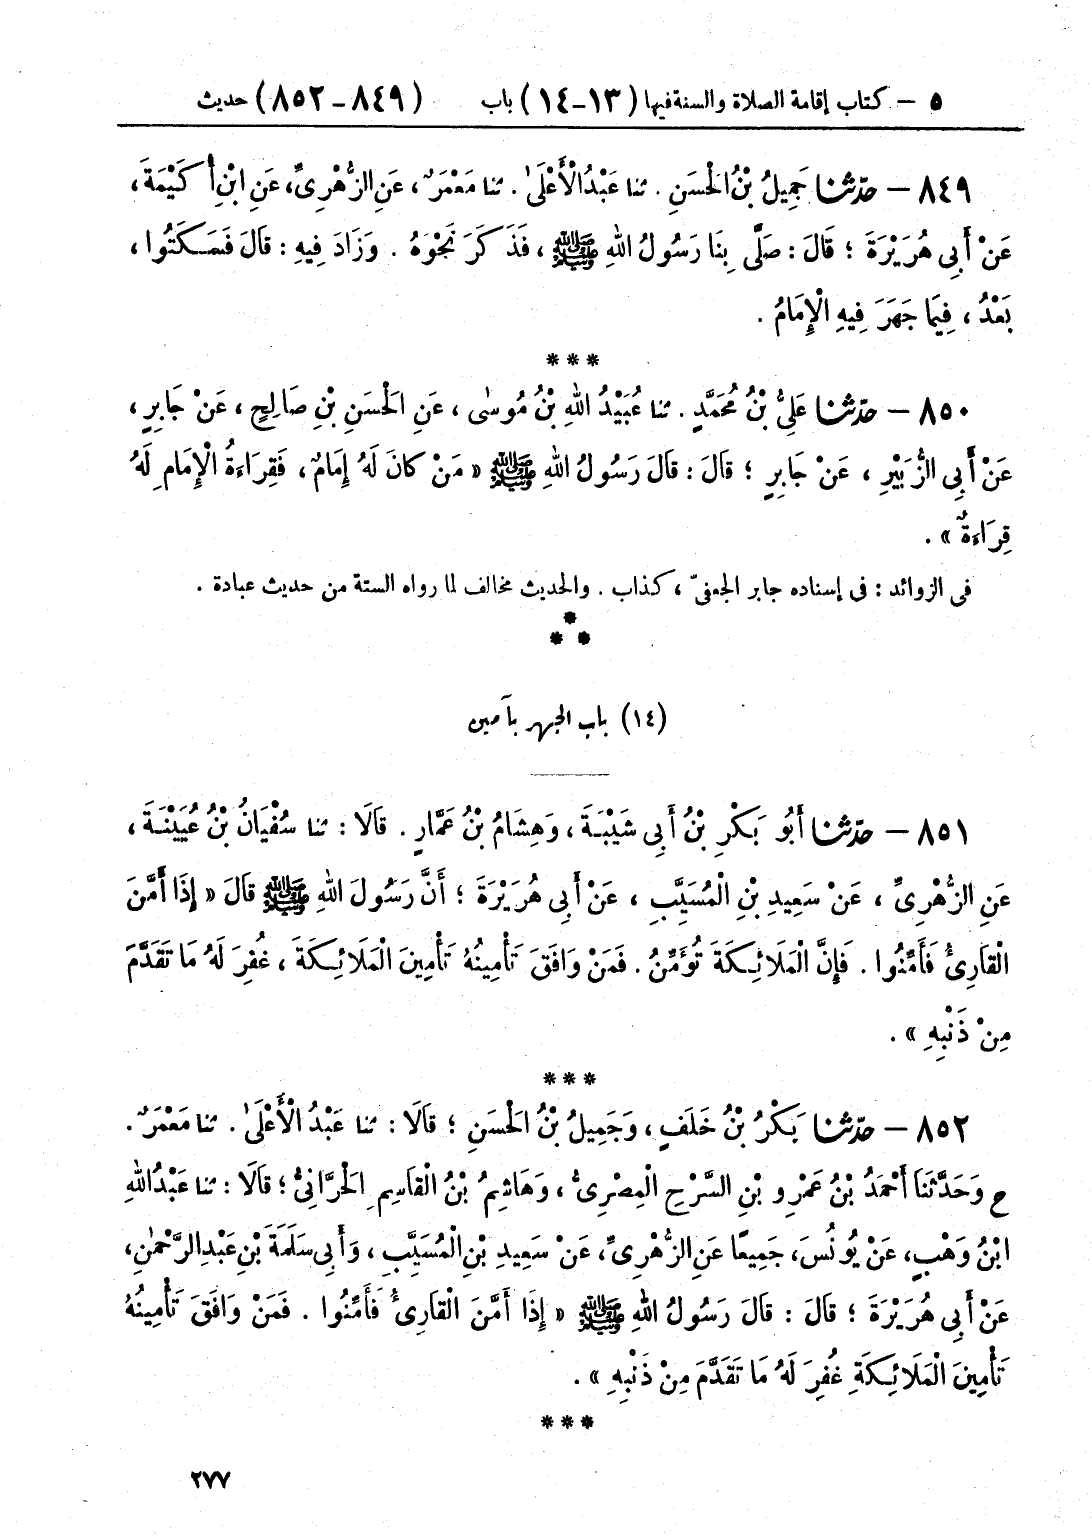 ٥ – كتاب إقامة الصلاة والسنة فيها (١٣–١٤) باب (٨٤٩–٨٥٢) حديث
٨٤٩ – حدّثنا جَمِيلُ بْنُ الْحَسَنِ . ثنا عَبْدُ الْأَعْلَىٰ . ثنا مَعْمَرٌ ، عَنِ الزُّهْرِىِّ، عَنِ ابْنِ أُكَيْمَةَ ،
عَنْ أَبِى هُرَيْرَةَ ؛ قَالَ : صَلَّى بِنَا رَسُولُ اللهِ ﷺ ، فَذَكَرَ نَحْوَهُ . وَزَادَ فِيهِ : قَالَ فَسَكَتُوا ،
بَعْدُ ، فِيمَا جَهَرَ فِيهِ الْإِمَامُ .
***
٨٥٠ – حدّثنا عَلِىُّ بْنُ مُحَمَّدٍ . ثنا عُبَيْدُ اللهِ بْنُ مُوسٰى ، عَنِ الْحَسَنِ بْنِ صَالِحٍ ، عَنْ جَابِرٍ ،
عَنْ أَبِى الزُّبَيْرِ ، عَنْ جَابِرٍ ؛ قَالَ : قَالَ رَسُولُ اللهِ ﷺ « مَنْ كَانَ لَهُ إِمَامٌ ، فَقِرَاءَةُ الْإِمَامِ لَهُ
قِرَاءَةٌ » .
فى الزوائد : فى إسناده جابر الجعفىّ ، كذاب . والحديث مخالف لما رواه الستة من حديث عبادة .
***
(١٤) باب الجهر بآمين
٨٥١ – حدّثنا أَبُو بَكْرِ بْنُ أَبِى شَيْبَةَ ، وَهِشَامُ بْنُ عَمَّارٍ . قَالَا : ثنا سُفْيَانُ بْنُ عُيَيْنَةَ ،
عَنِ الزُّهْرِىِّ ، عَنْ سَعِيدِ بْنِ الْمُسَيَّبِ ، عَنْ أَبِى هُرَيْرَةَ ؛ أَنَّ رَسُولَ اللهِ ﷺ قَالَ « إِذَا أَمَّنَ
الْقَارِئُ فَأَمِّنُوا . فَإِنَّ الْمَلَائِكَةَ تُؤَمِّنُ . فَمَنْ وَافَقَ تَأْمِينُهُ تَأْمِينَ الْمَلَائِكَةَ ، غُفِرَ لَهُ مَا تَقَدَّمَ
مِنْ ذَنْبِهِ » .
***
٨٥٢ – حدّثنا بَكْرُ بْنُ خَلَفٍ ، وَجَمِيلُ بْنُ الْحَسَنِ ؛ قَالَا : ثنا عَبْدُ الْأَعْلَىٰ . ثنا مَعْمَرٌ .
ح وَحَدَّثَنَا أَحْمَدُ بْنُ عَمْرِو بْنِ السَّرْحِ الْمِصْرِىُّ ، وَهَاشِمُ بْنُ الْقَاسِمِ الْحَرَّانِىُّ ؛ قَالَا : ثنا عَبْدُ اللهِ
ابْنُ وَهْبٍ، عَنْ يُونُسَ، جَمِيعًا عَنِ الزُّهْرِىِّ، عَنْ سَعِيدِ بْنِ الْمُسَيَّبِ ، وَأَبِى سَلَمَةَ بْنِ عَبْدِ الرَّحْمٰنِ،
عَنْ أَبِى هُرَيْرَةَ ؛ قَالَ : قَالَ رَسُولُ اللهِ ﷺ « إِذَا أَمَّنَ الْقَارِئُ فَأَمِّنُوا . فَمَنْ وَافَقَ تَأْمِينُهُ
تَأْمِينَ الْمَلَائِكَةِ غُفِرَ لَهُ مَا تَقَدَّمَ مِنْ ذَنْبِهِ » .
***
٢٧٧